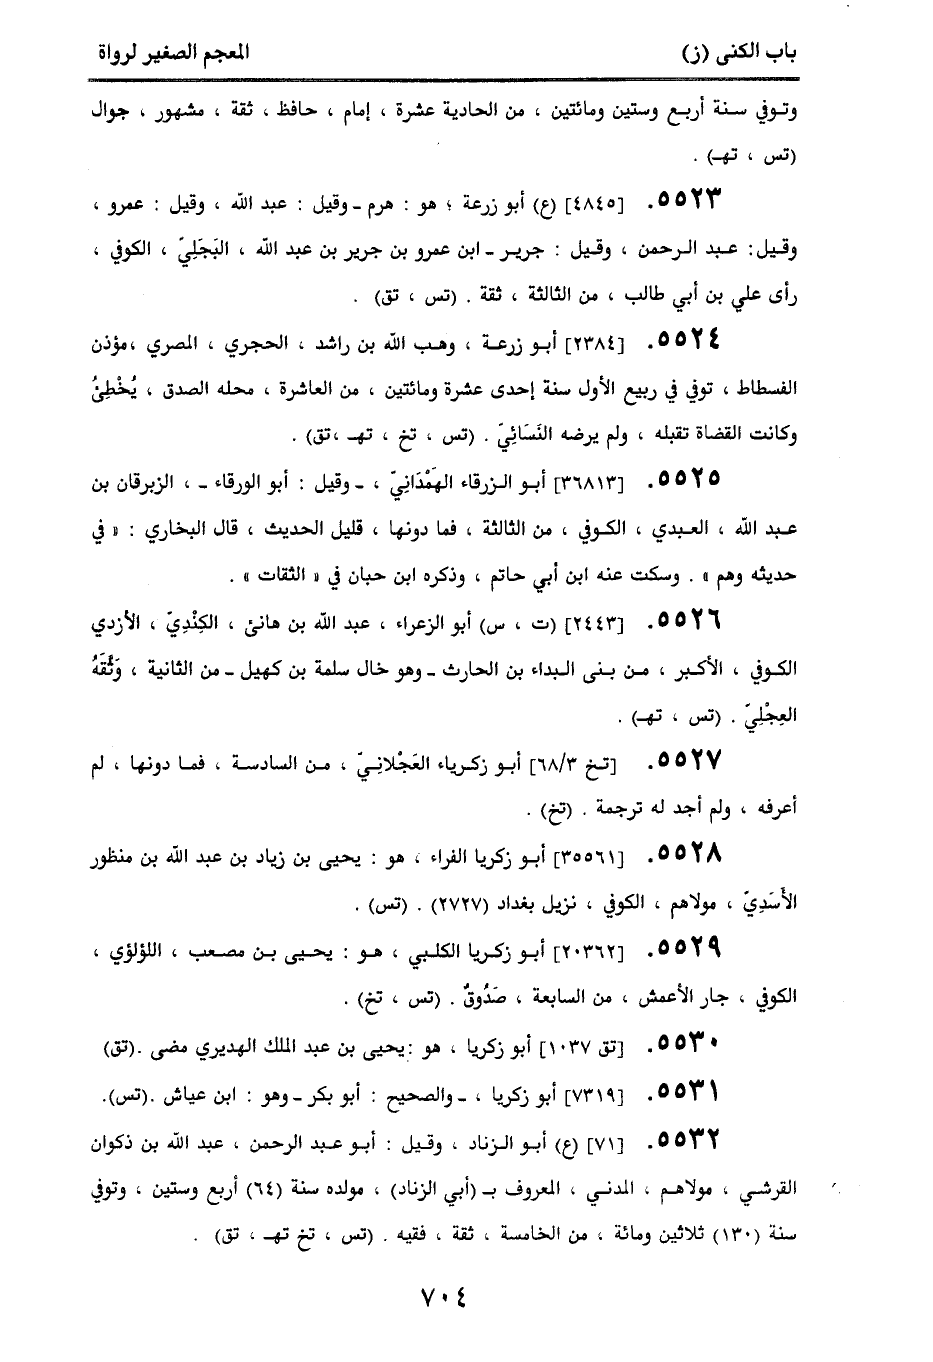 باب الكنى (ز)
المعجم الصغير لرواة
وتوفي سنة أربع وستين ومائتين ، من الحادية عشرة ، إمام ، حافظ ، ثقة ، مشهور ، جوال
(تس ، تهـ) .
٥٥٢٣. [٤٨٤٥] (ع) أبو زرعة ؛ هو : هرم ـ وقيل : عبد الله ، وقيل : عمرو ،
وقيل: عبد الرحمن ، وقيل : جرير ـ ابن عمرو بن جرير بن عبد الله ، البَجَلِيّ ، الكوفي ،
رأى علي بن أبي طالب ، من الثالثة ، ثقة . (تس ، تق) .
٥٥٢٤. [٢٣٨٤] أبو زرعة ، وهب الله بن راشد ، الحجري ، المصري ،مؤذن
الفسطاط ، توفي في ربيع الأول سنة إحدى عشرة ومائتين ، من العاشرة ، محله الصدق ، يُخْطِئُ
وكانت القضاة تقبله ، ولم يرضه النَسَائِيّ . (تس ، تخ ، تهـ ،تق) .
٥٥٢٥. [٣٦٨١٣] أبو الزرقاء الهَمْدَانِيّ ، ـ وقيل : أبو الورقاء ـ ، الزبرقان بن
عبد الله ، العبدي ، الكوفي ، من الثالثة ، فما دونها ، قليل الحديث ، قال البخاري : « في
حديثه وهم » . وسكت عنه ابن أبي حاتم ، وذكره ابن حبان في « الثقات » .
٥٥٢٦. [٢٤٤٣] (ت ، س) أبو الزعراء ، عبد الله بن هانئ ، الكِنْدِيّ ، الأزدي
الكوفي ، الأكبر ، من بنى البداء بن الحارث ـ وهو خال سلمة بن كهيل ـ من الثانية ، وَثَّقَهُ
العِجْلِيّ . (تس ، تهـ) .
٥٥٢٧. [تخ ٦٨/٣] أبو زكرياء العَجْلانِيّ ، من السادسة ، فما دونها ، لم
أعرفه ، ولم أجد له ترجمة . (تخ) .
٥٥٢٨. [٣٥٥٦١] أبو زكريا الفراء ، هو : يحيى بن زياد بن عبد الله بن منظور
الأَسَدِيّ ، مولاهم ، الكوفي ، نزيل بغداد (٢٧٢٧) . (تس) .
٥٥٢٩. [٢٠٣٦٢] أبو زكريا الكلبي ، هو : يحيى بن مصعب ، اللؤلؤي ،
الكوفي ، جار الأعمش ، من السابعة ، صَدُوقٌ . (تس ، تخ) .
٥٥٣٠. [تق ١٠٣٧] أبو زكريا ، هو :يحيى بن عبد الملك الهديري مضى .(تق)
٥٥٣١. [٧٣١٩] أبو زكريا ، ـ والصحيح : أبو بكر ـ وهو : ابن عياش .(تس).
٥٥٣٢. [٧١] (ع) أبو الزناد ، وقيل : أبو عبد الرحمن ، عبد الله بن ذكوان
القرشي ، مولاهم ، المدني ، المعروف بـ (أبي الزناد) ، مولده سنة (٦٤) أربع وستين ، وتوفي
سنة (١٣٠) ثلاثين ومائة ، من الخامسة ، ثقة ، فقيه . (تس ، تخ تهـ ، تق) .
٧٠٤